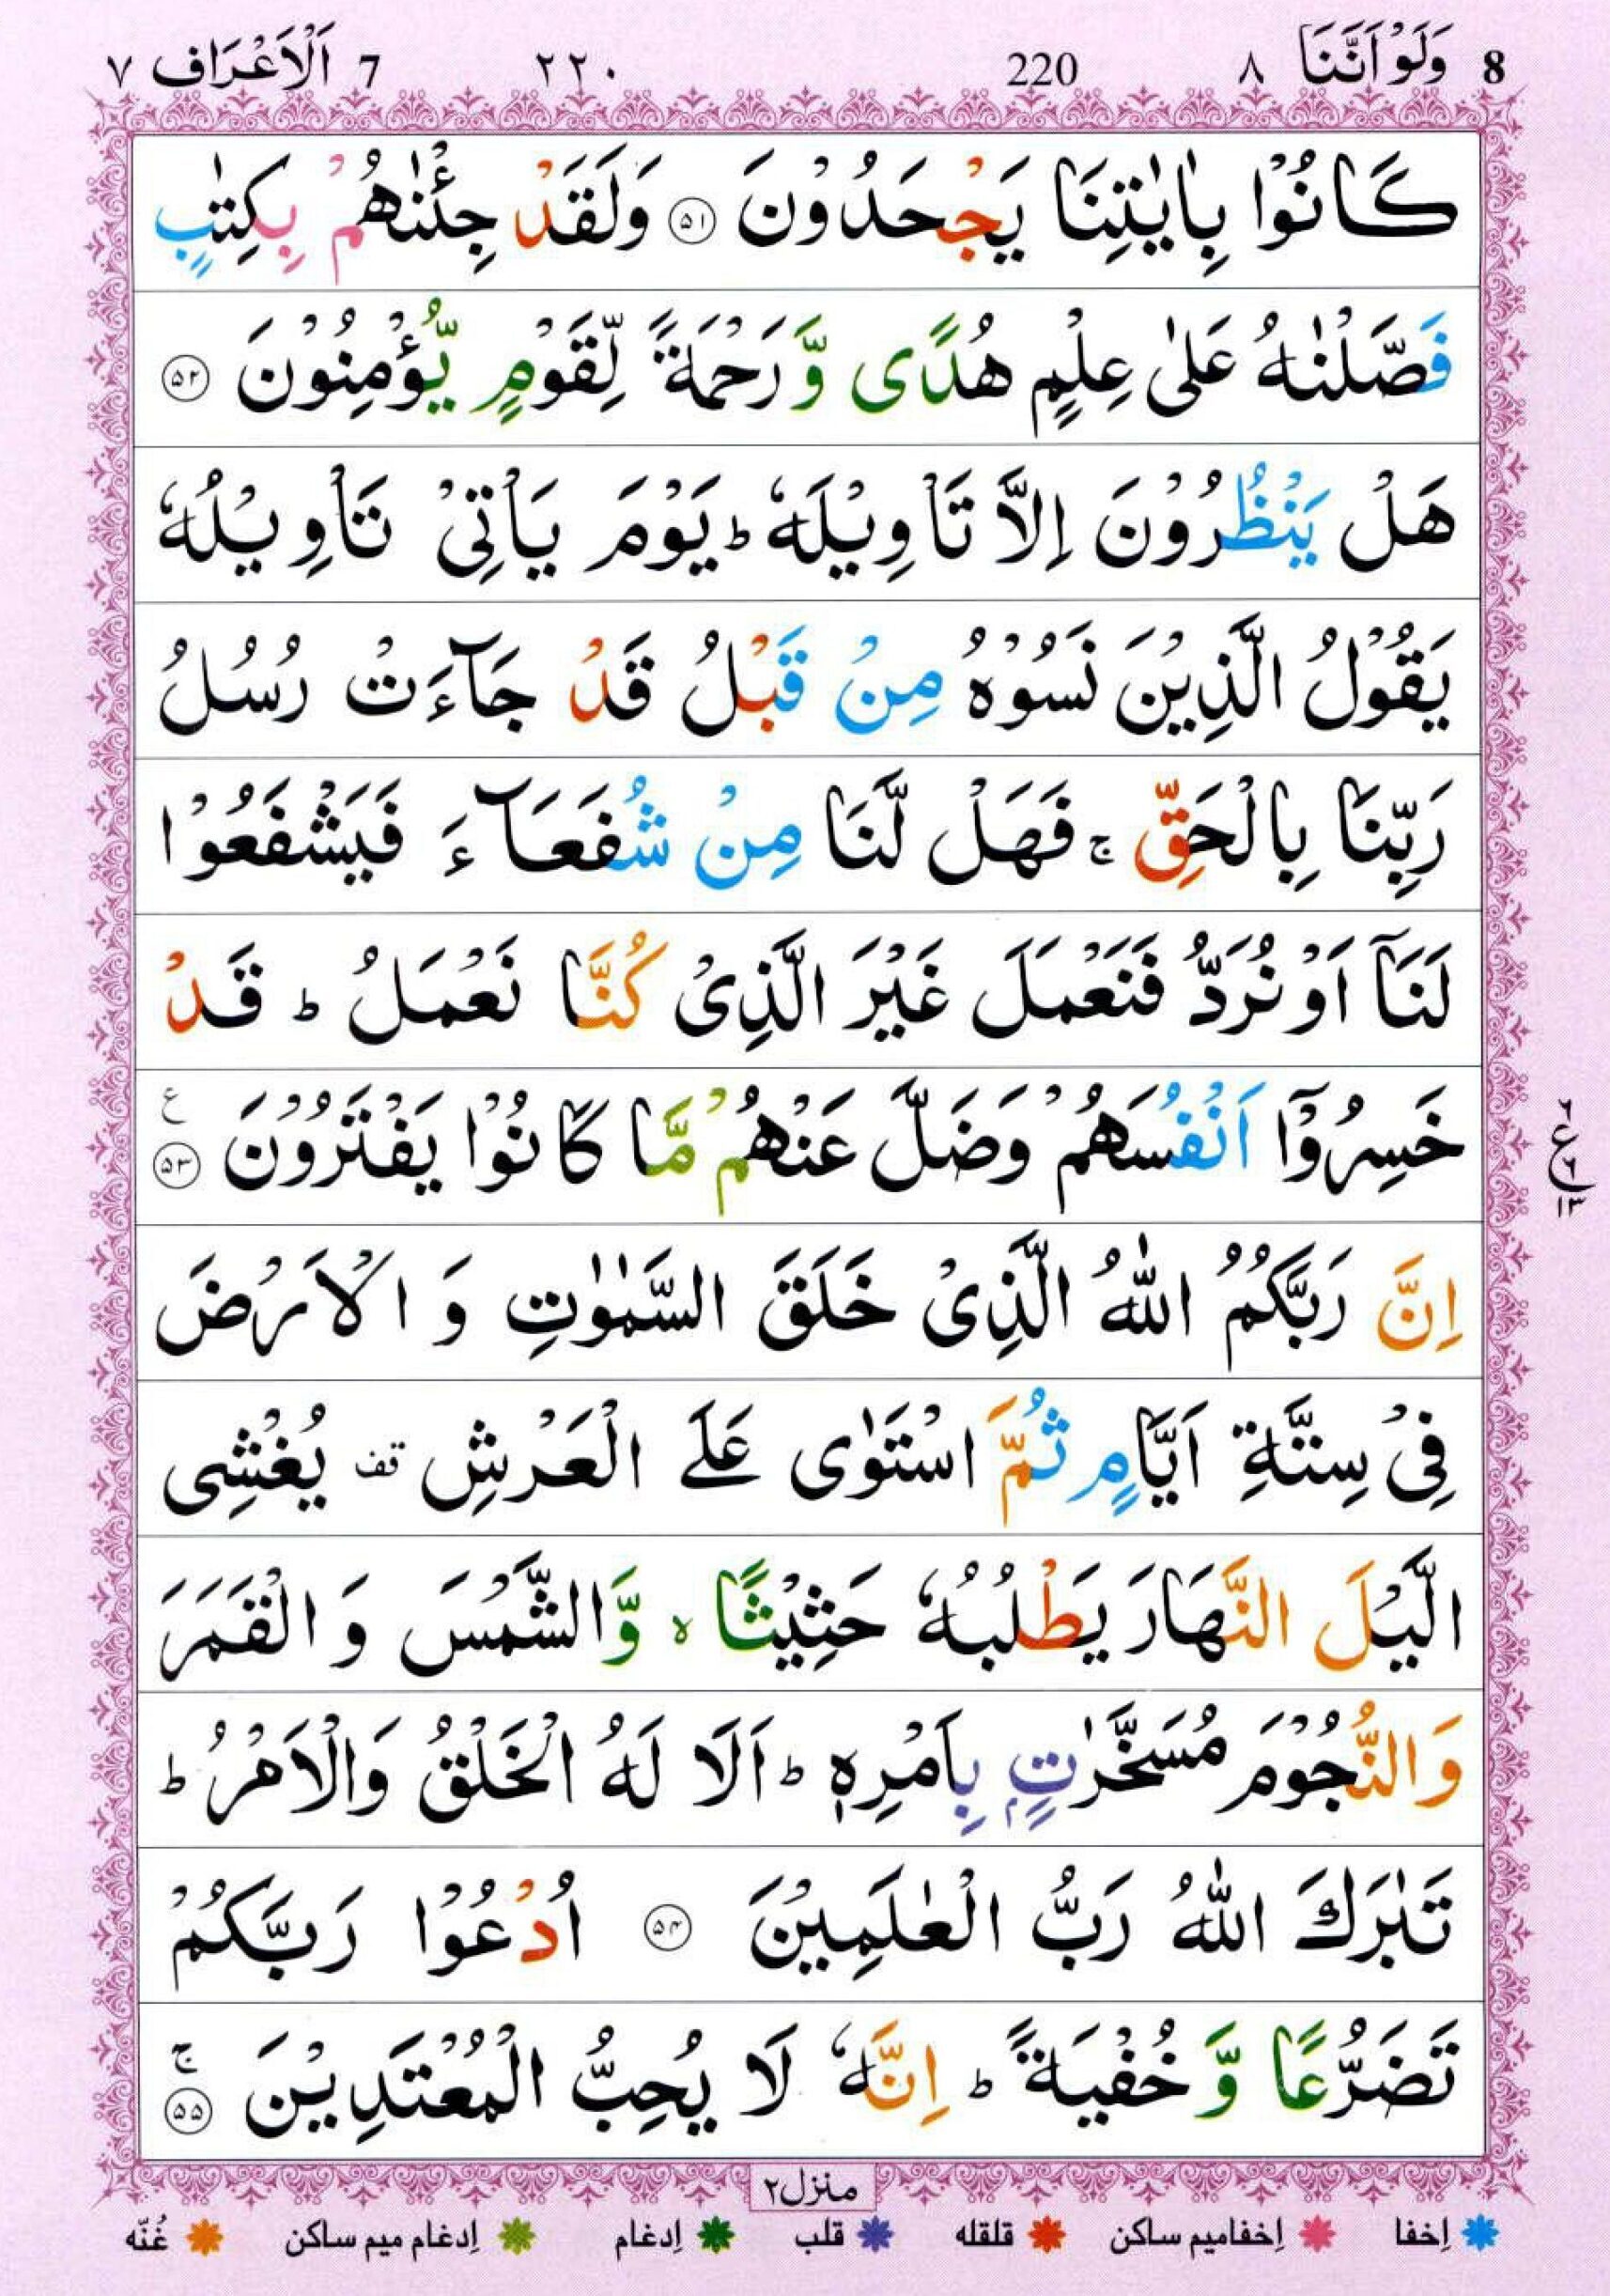 8 وَلَوْ اَنَّنَا ٨ 220 ٢٢٠ 7 اَلْاَعْرَاف ٧
كَانُوْا بِاٰيٰتِنَا يَجْحَدُوْنَ ۝٥١ وَلَقَدْ جِئْنٰهُمْ بِكِتٰبٍ
فَصَّلْنٰهُ عَلٰى عِلْمٍ هُدًى وَّرَحْمَةً لِّقَوْمٍ يُّؤْمِنُوْنَ ۝٥٢
هَلْ يَنْظُرُوْنَ اِلَّا تَاْوِيْلَهٗ ؕ يَوْمَ يَاْتِىْ تَاْوِيْلُهٗ
يَقُوْلُ الَّذِيْنَ نَسُوْهُ مِنْ قَبْلُ قَدْ جَآءَتْ رُسُلُ
رَبِّنَا بِالْحَقِّ ۚ فَهَلْ لَّنَا مِنْ شُفَعَآءَ فَيَشْفَعُوْا
لَنَآ اَوْ نُرَدُّ فَنَعْمَلَ غَيْرَ الَّذِىْ كُنَّا نَعْمَلُ ؕ قَدْ
خَسِرُوْٓا اَنْفُسَهُمْ وَضَلَّ عَنْهُمْ مَّا كَانُوْا يَفْتَرُوْنَ ۝٥٣ ع
اِنَّ رَبَّكُمُ اللّٰهُ الَّذِىْ خَلَقَ السَّمٰوٰتِ وَ الْاَرْضَ
فِىْ سِتَّةِ اَيَّامٍ ثُمَّ اسْتَوٰى عَلَى الْعَرْشِ قف يُغْشِى
الَّيْلَ النَّهَارَ يَطْلُبُهٗ حَثِيْثًا ۙ وَّالشَّمْسَ وَ الْقَمَرَ
وَالنُّجُوْمَ مُسَخَّرٰتٍۭ بِاَمْرِهٖ ؕ اَلَا لَهُ الْخَلْقُ وَالْاَمْرُ ؕ
تَبٰرَكَ اللّٰهُ رَبُّ الْعٰلَمِيْنَ ۝٥٤ اُدْعُوْا رَبَّكُمْ
تَضَرُّعًا وَّ خُفْيَةً ؕ اِنَّهٗ لَا يُحِبُّ الْمُعْتَدِيْنَ ۚ ۝٥٥
منزل ٢
اِخفا اِخفامیم ساکن قلقله قلب اِدغام اِدغام میم ساکن غُنّه